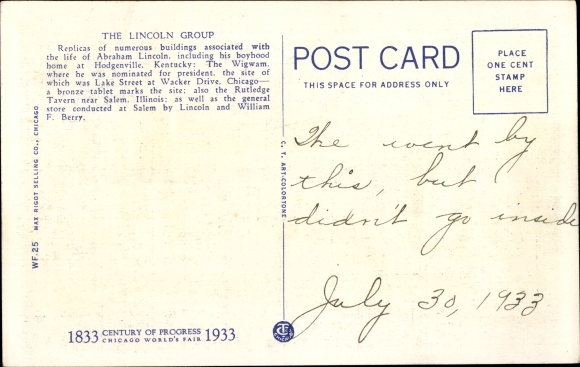 THE LINCOLN GROUP
Replicas of numerous buildings associated with
the life of Abraham Lincoln, including his boyhood
home at Hodgenville, Kentucky; The Wigwam,
where he was nominated for president, the site of
which was Lake Street at Wacker Drive, Chicago—
a bronze tablet marks the site; also the Rutledge
Tavern near Salem, Illinois; as well as the general
store conducted at Salem by Lincoln and William
F. Berry.
WF.25 MAX RIGOT SELLING CO., CHICAGO
1833 CENTURY OF PROGRESS 1933
CHICAGO WORLD'S FAIR
C. T. ART-COLORTONE
POST CARD
THIS SPACE FOR ADDRESS ONLY
PLACE
ONE CENT
STAMP
HERE
The went by
this, but
didn't go inside
July 30, 1933